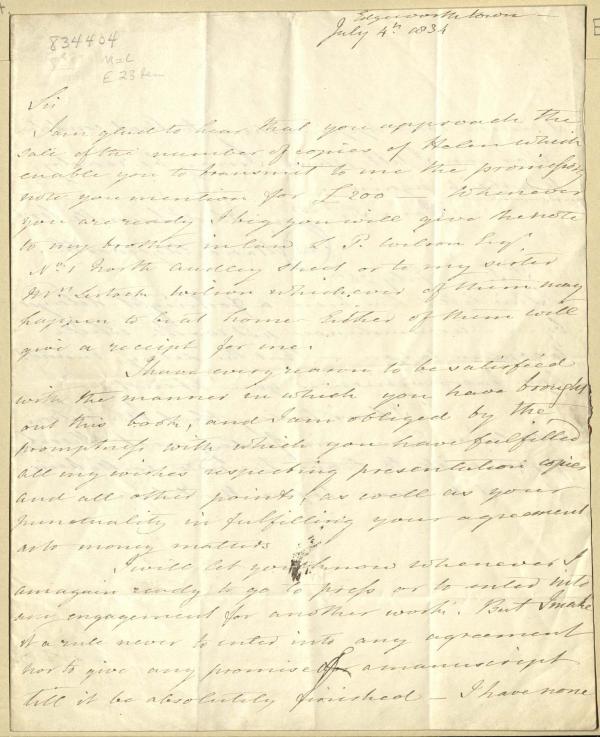 Edgeworthstown —
July 4th 1834
834404
E 23 Lem
Sir
I am glad to hear that you approach the
sale of the number of copies of Helen which
enable you to transmit to me the promissory
note you mention for £200 — Whenever
you are ready I beg you will give the note
to my brother in law L. P. Wilson Esqr.
No. 1 North Audley Street or to my sister
Mrs. Lestock Wilson whichever of them may
happen to be at home Either of them will
give a receipt for me.
I have every reason to be satisfied
with the manner in which you have brought
out this book, and I am obliged by the
promptness with which you have fulfilled
all my wishes respecting presentation copies
and all other points, as well as your
punctuality in fulfilling your agreement
as to money matters
I will let you know whenever I
am again ready to go to press or to enter into
any engagement for another work. But I make
it a rule never to enter into any agreement
nor to give any promise of a manuscript
till it be absolutely finished — I have none